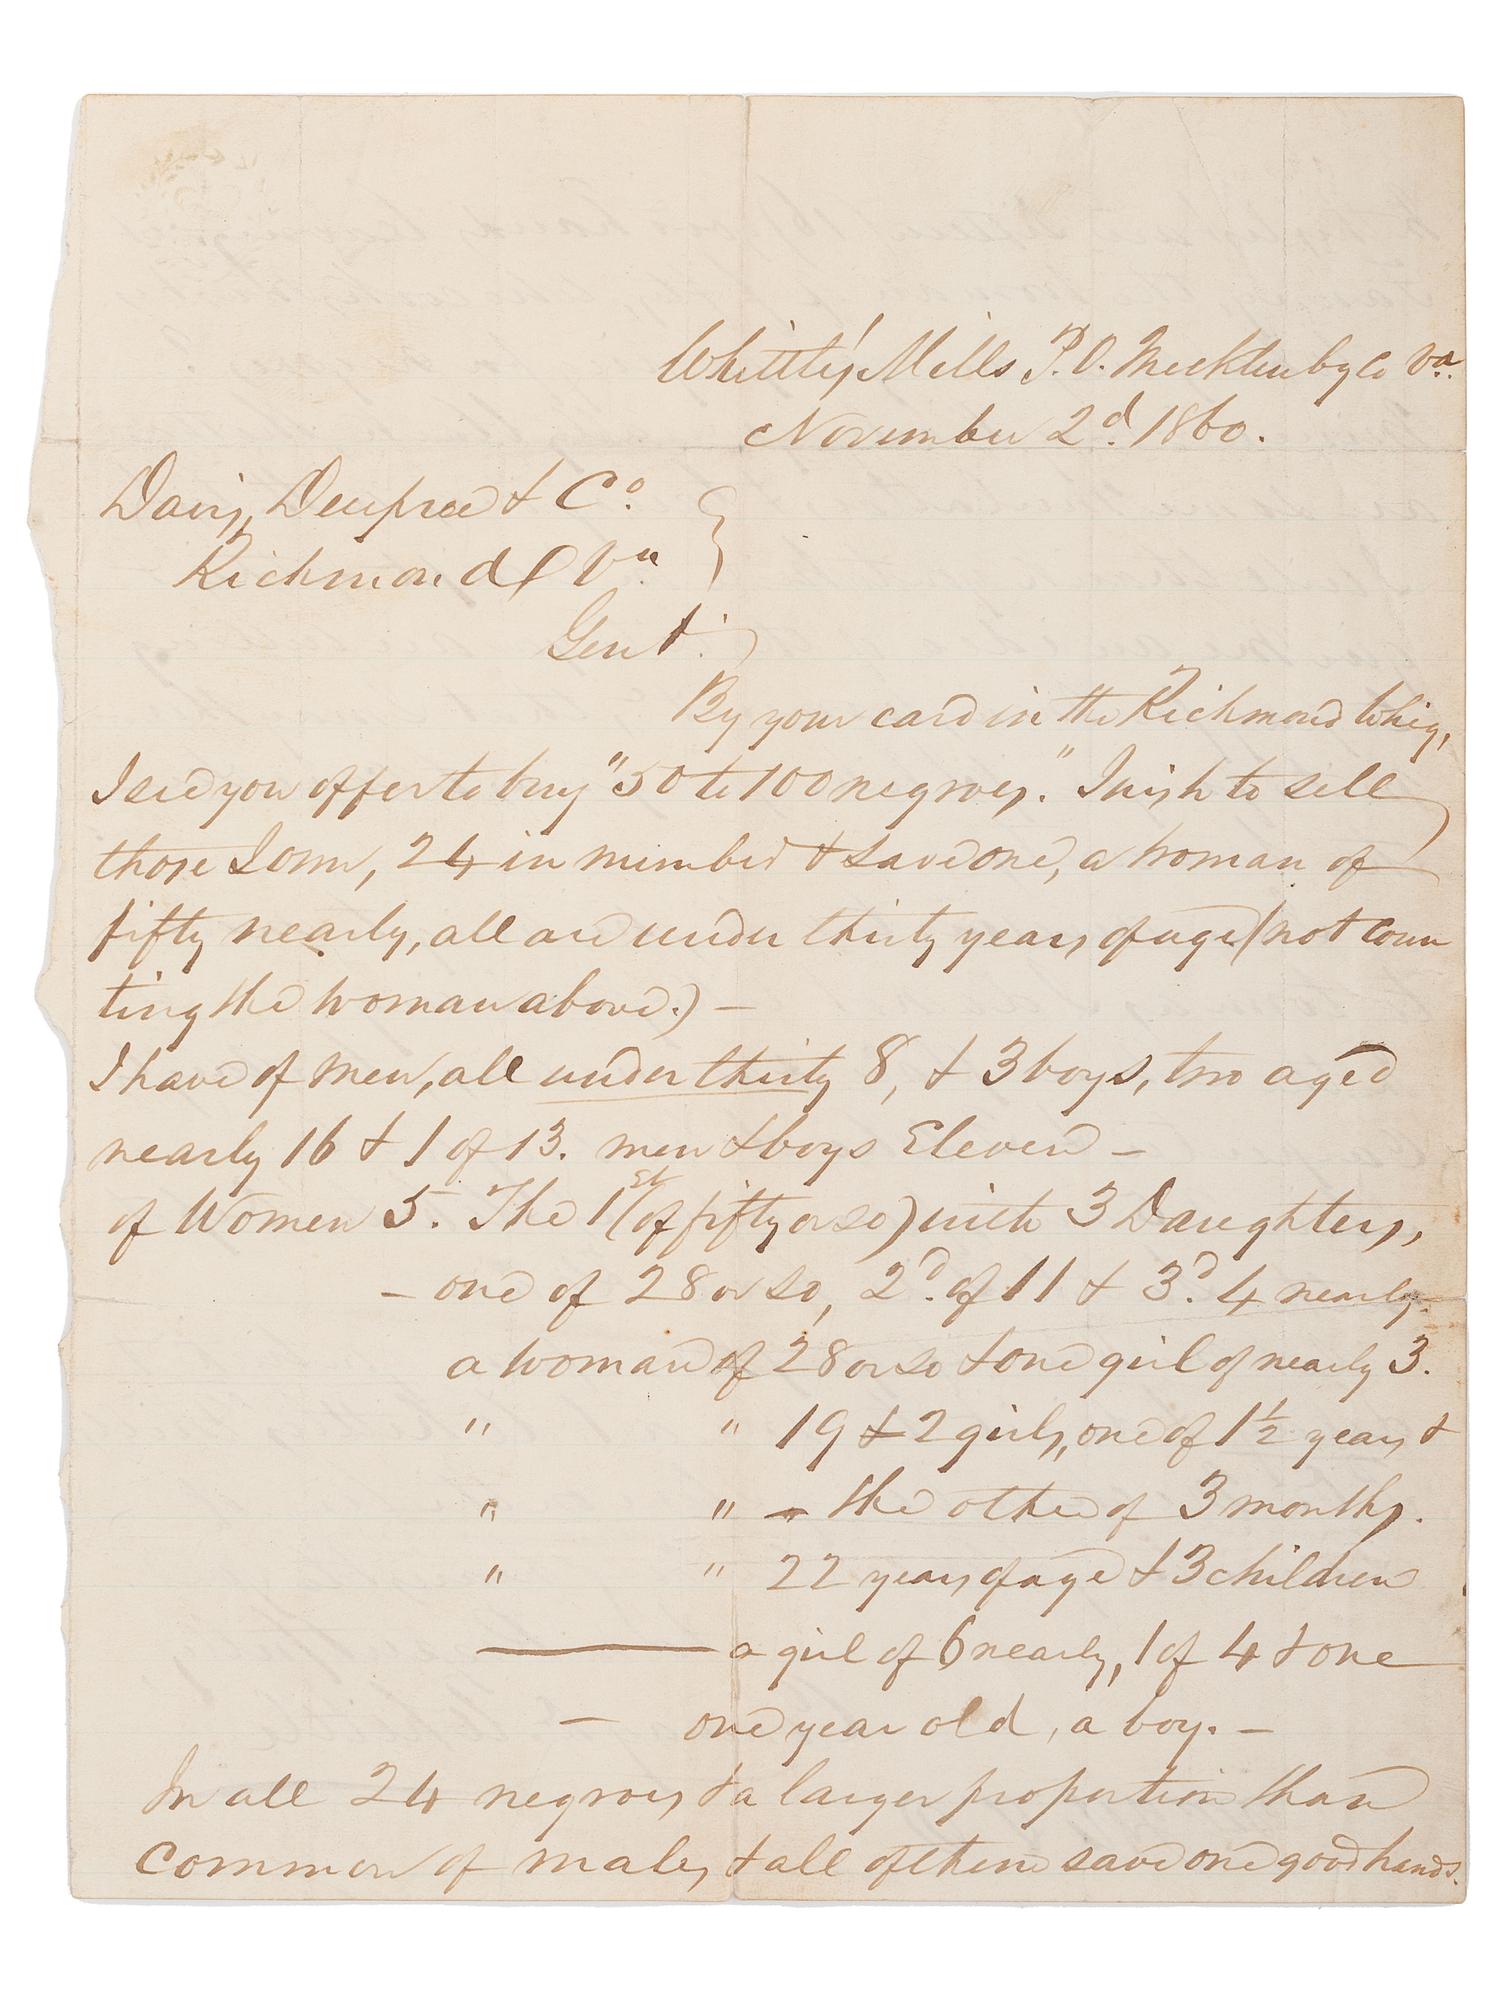 Whittle's Mills P.O. Mecklenbg Co Va.
November 2d. 1860.
Davis, Deupree & Co.
Richmond Va
Gent.
By your card in the Richmond Whig,
I see you offer to buy "50 to 100 negroes." I wish to sell
those I own, 24 in number & save one, a woman of
fifty nearly, all are under thirty years of age (not coun
ting the woman above.) —
I have of men, all under thirty 8, & 3 boys, two aged
nearly 16 & 1 of 13. men & boys Eleven —
of Women 5. The 1st (of fifty or so) with 3 Daughters,
— one of 28 or so, 2d. of 11 & 3d. 4 nearly.
a woman of 28 or so & one girl of nearly 3.
" " 19 & 2 girls, one of 1½ years &
" " — the other of 3 months.
" " 22 years of age & 3 children
— a girl of 6 nearly, 1 of 4 & one
— one year old, a boy. —
In all 24 negroes & a larger proportion than
common of males, & all of them save one good hands.